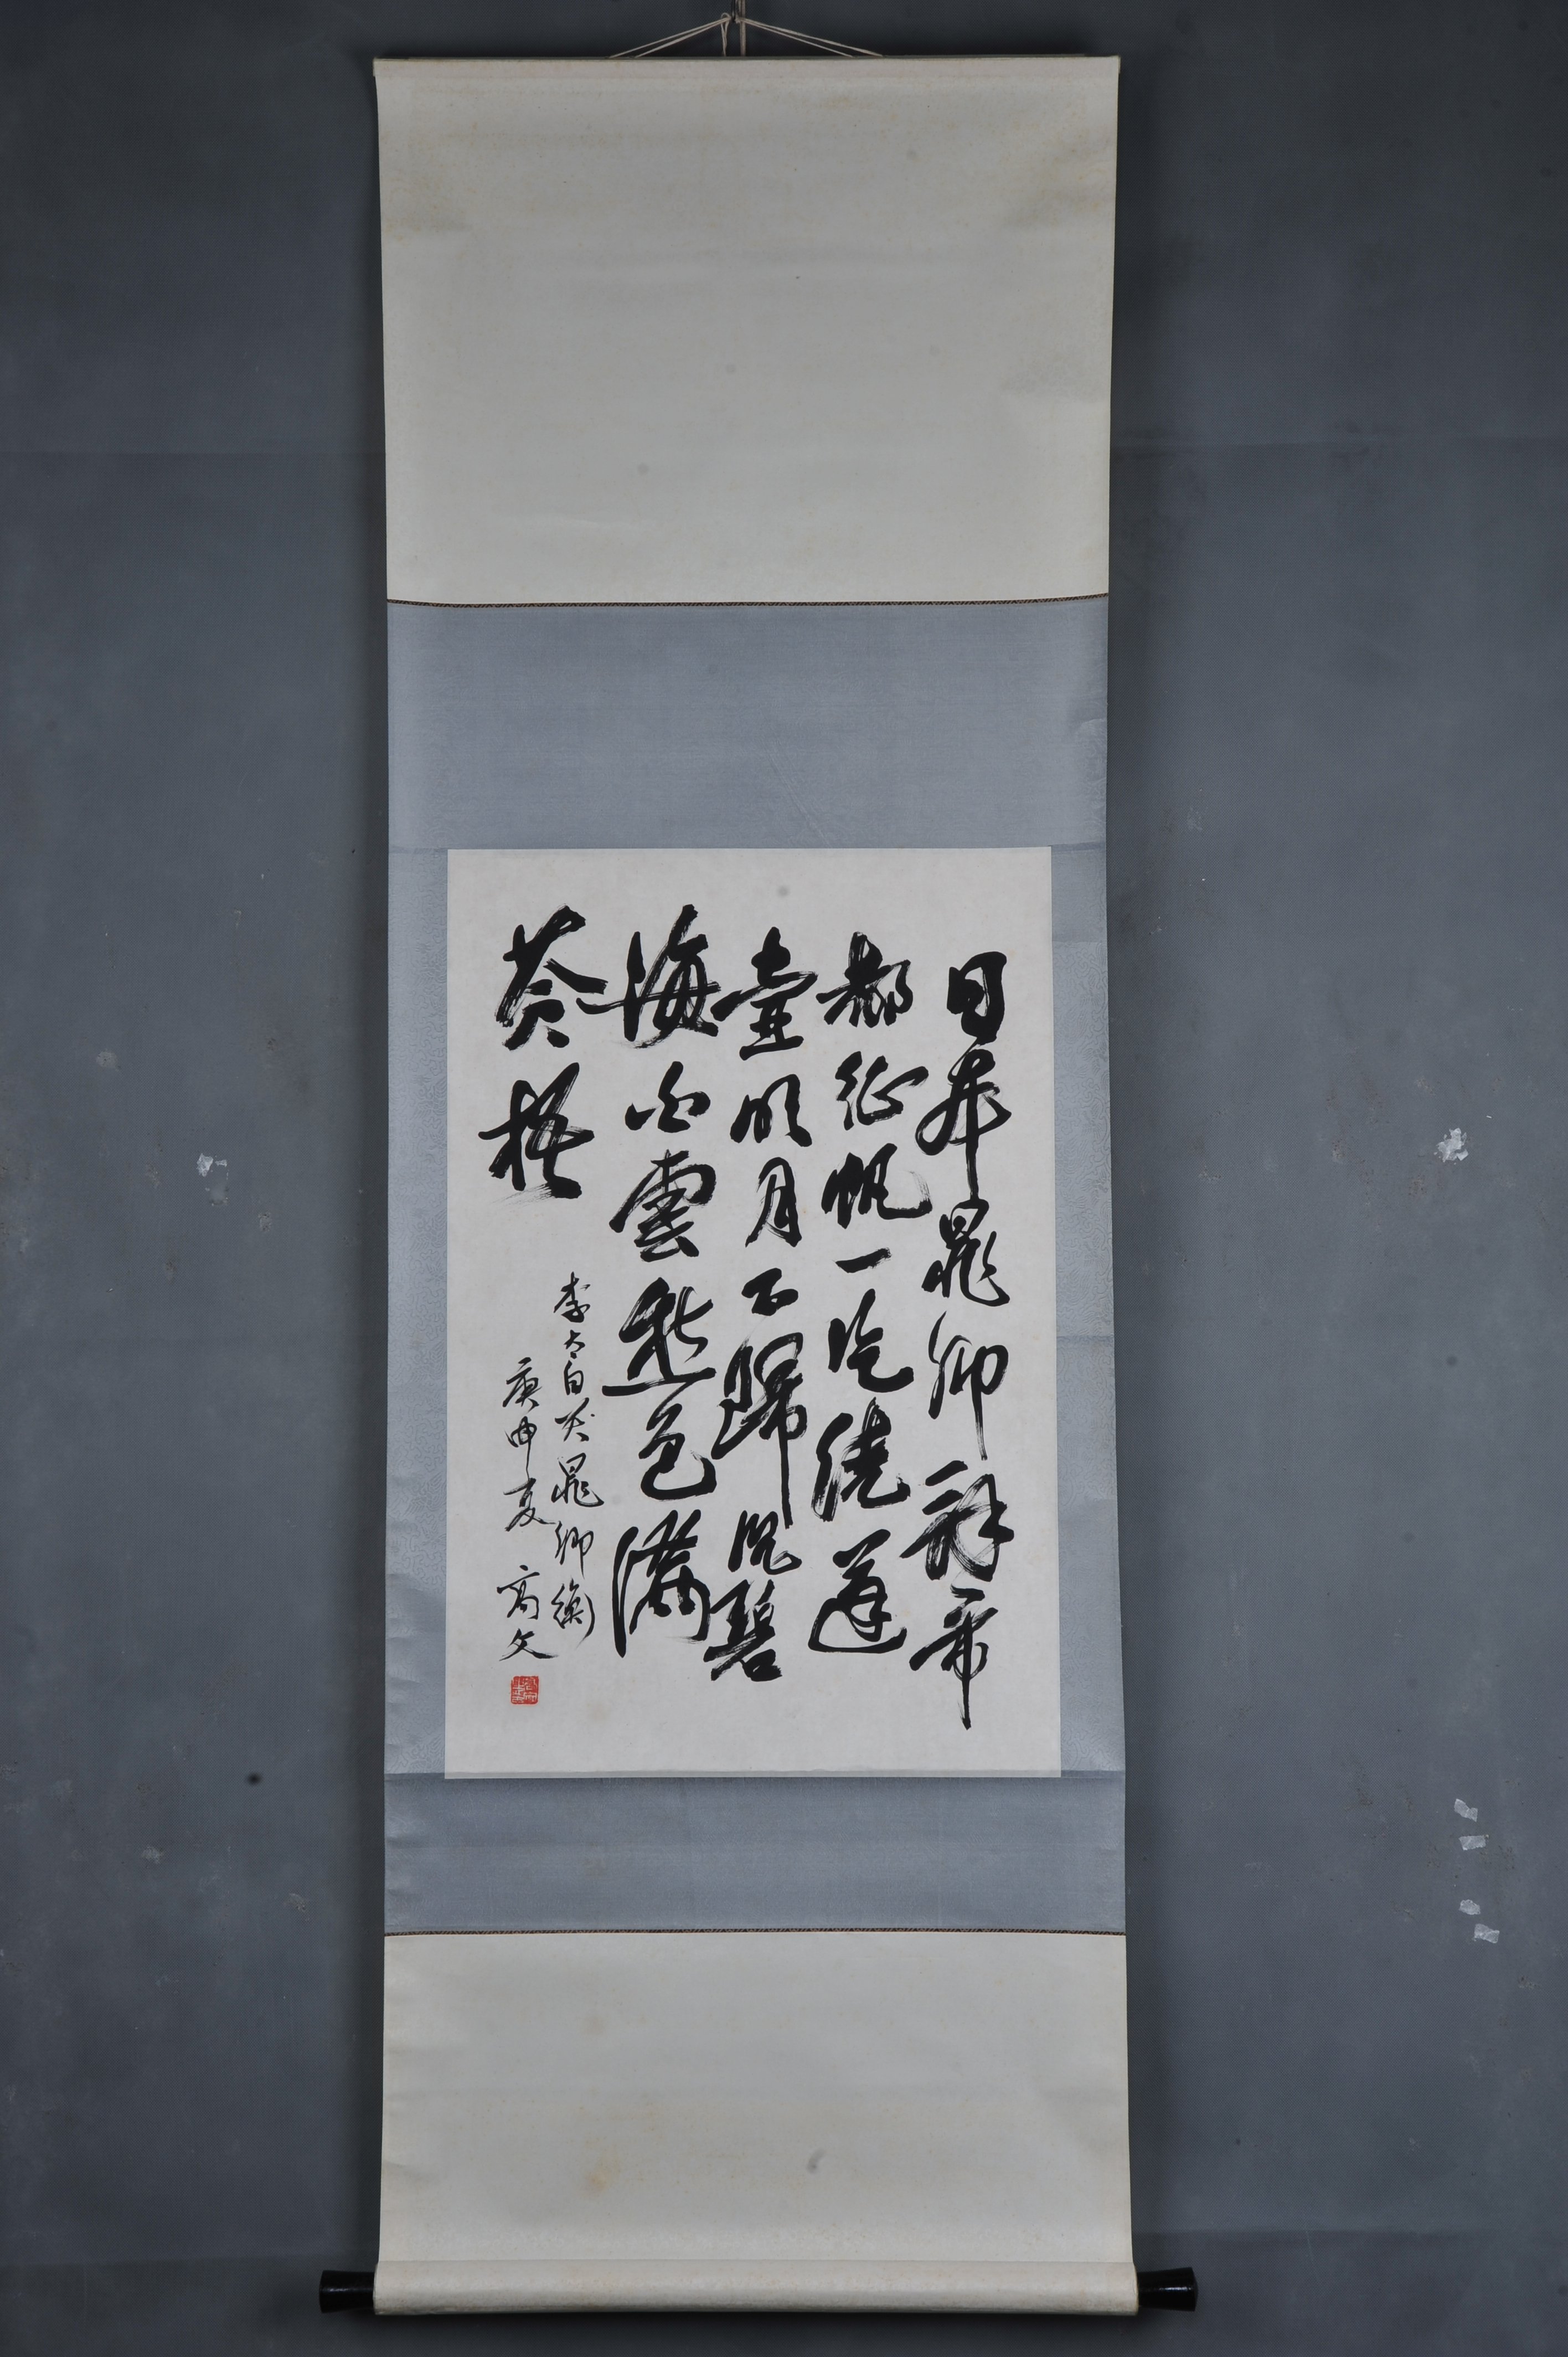 日本晁卿辞帝
都征帆一片繞蓬
壺明月不歸沉碧
海白雲愁色滿
蒼梧
李太白哭晁卿衡
庚申夏 高文